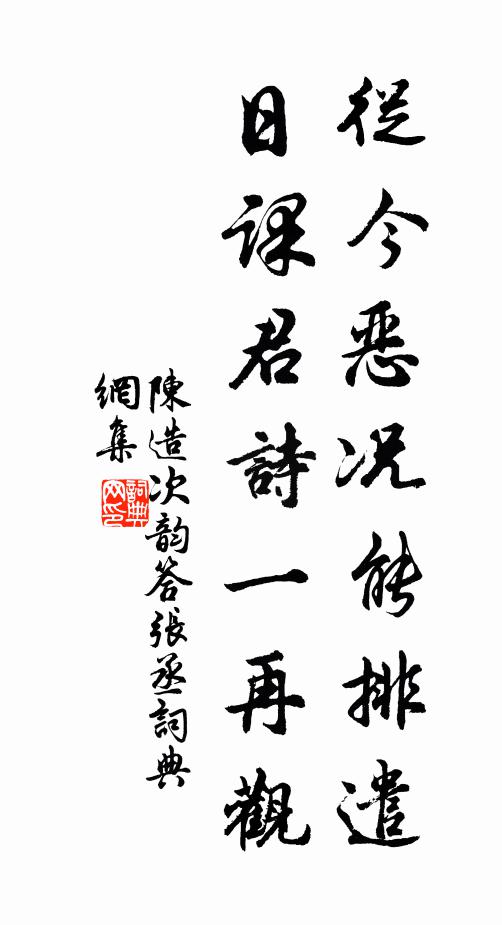 從今恶况能排遣
日課君詩一再觀
陳造次韵答張丞詞典
網集
詞典
网印